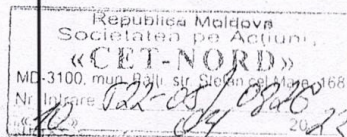 Republica Moldova
Societatea pe Acțiuni
«CET-NORD»
MD-3100, mun. Bălți, str. Ștefan cel Mare, 168
Nr. Intrare
«10» 04 20 23